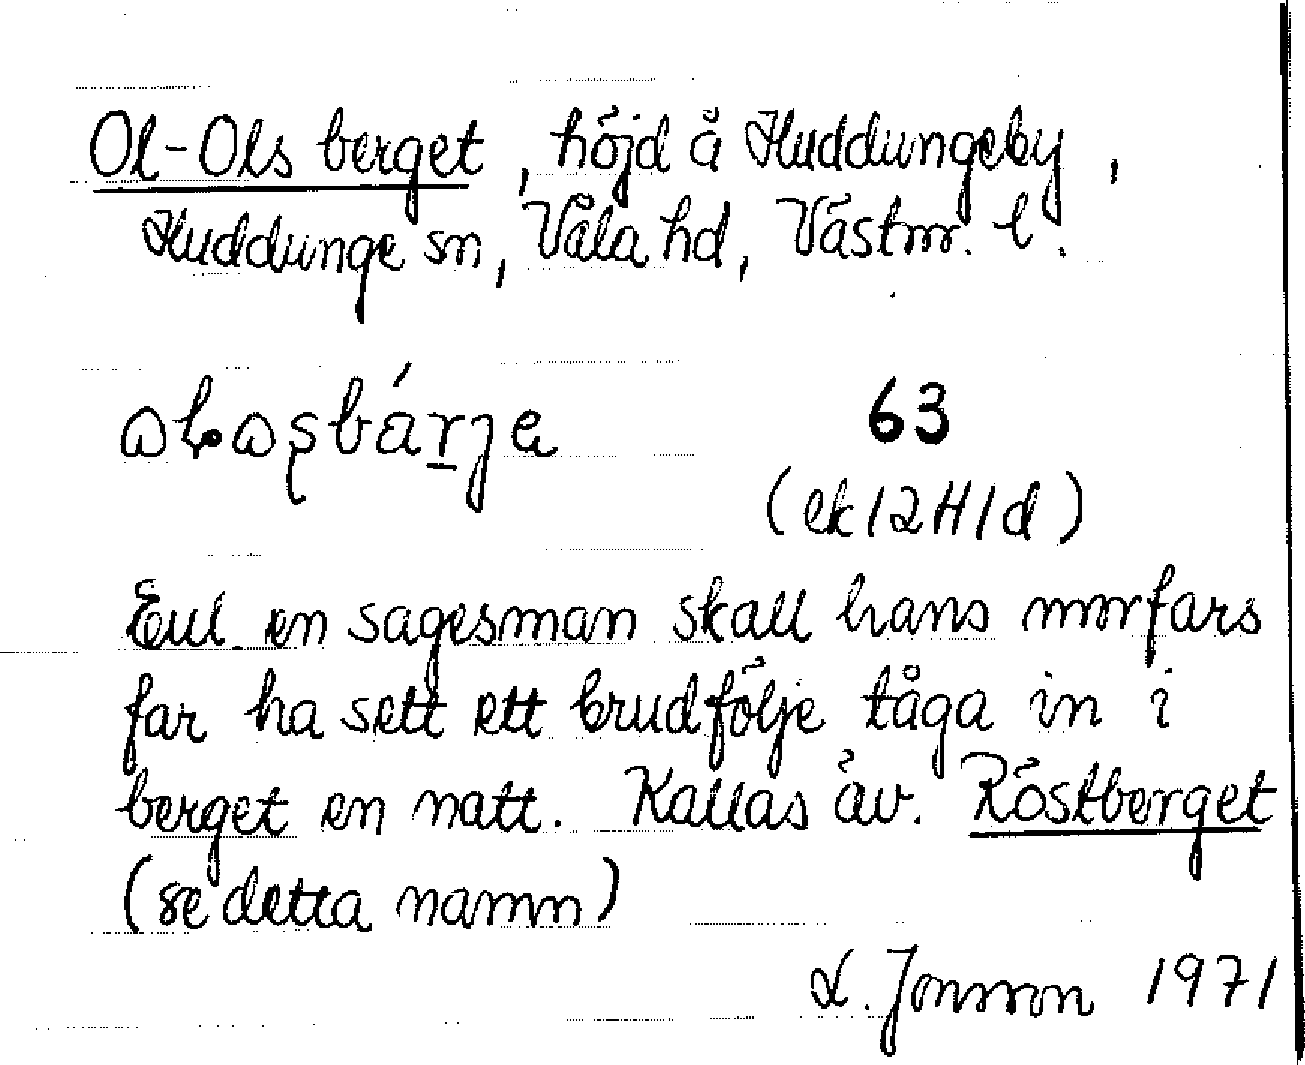 Ol-Ols berget, höjd å Huddungeby,
Huddunge sn, Våla hd, Västmr. l.
63
(ek 12H1d)
Enl. en sagesman skall hans morfars
far ha sett ett brudfölje tåga in i
berget en natt. Kallas äv. Röstberget
(se detta namn)
L. Jonsson 1971